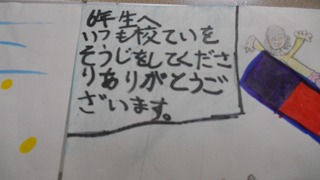 6年生へ
いつも校ていを
そうじをしてくださ
りありがとうご
ざいます。